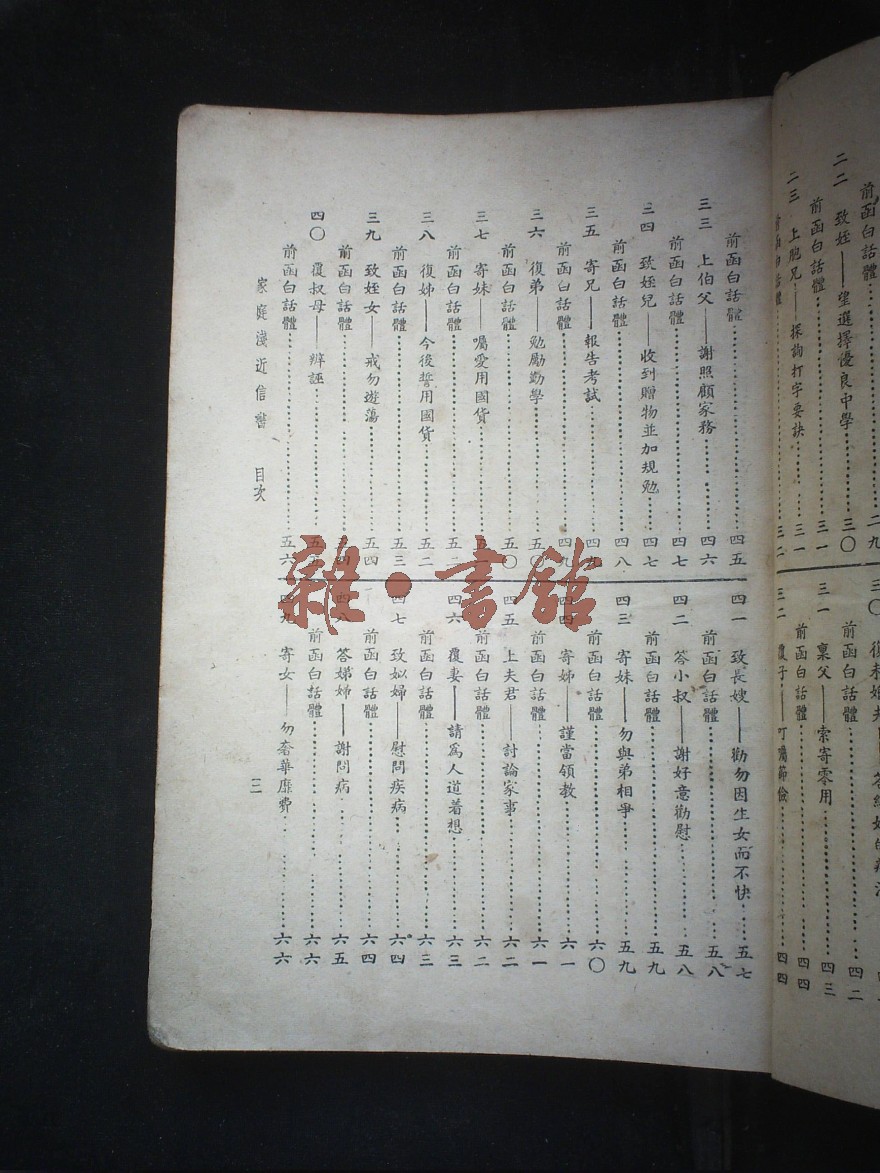 前函白話體……二九
二二 致姪——望選擇優良中學……三〇
前函白話體……三一
二三 上胞兄——探詢打字要訣……三一
前函白話體……三二
三〇 復未婚夫——
前函白話體……四二
三一 稟父——索寄零用……四三
前函白話體……四四
三二 覆子——叮囑節儉……四四
前函白話體……四五
三三 上伯父——謝照顧家務……四六
前函白話體……四七
三四 致姪兒——收到贈物並加規勉……四七
前函白話體……四八
三五 寄兄——報告考試……四九
前函白話體……四九
三六 復弟——勉勵勤學……五〇
前函白話體……五〇
三七 寄妹——囑愛用國貨……五
前函白話體……五二
三八 復姊——今後誓用國貨……五二
前函白話體……五三
三九 致姪女——戒勿遊蕩……五四
前函白話體……四
四〇 覆叔母——辨誣……五五
前函白話體……五六
四一 致長嫂——勸勿因生女而不快……五七
前函白話體……五八
四二 答小叔——謝好意勸慰……五八
前函白話體……五九
四三 寄妹——勿與弟相爭……五九
前函白話體……六〇
四四 寄姊——謹當領教……六一
前函白話體……六一
四五 上夫君——討論家事……六二
前函白話體……六二
四六 覆妻——請爲人道着想……六三
前函白話體……六三
四七 致姒婦——慰問疾病……六四
前函白話體……六四
四八 答娣婦——謝問病……六五
前函白話體……六六
四九 寄女——勿奢華靡費……六六
家庭淺近信書 目次
三
雜·書館